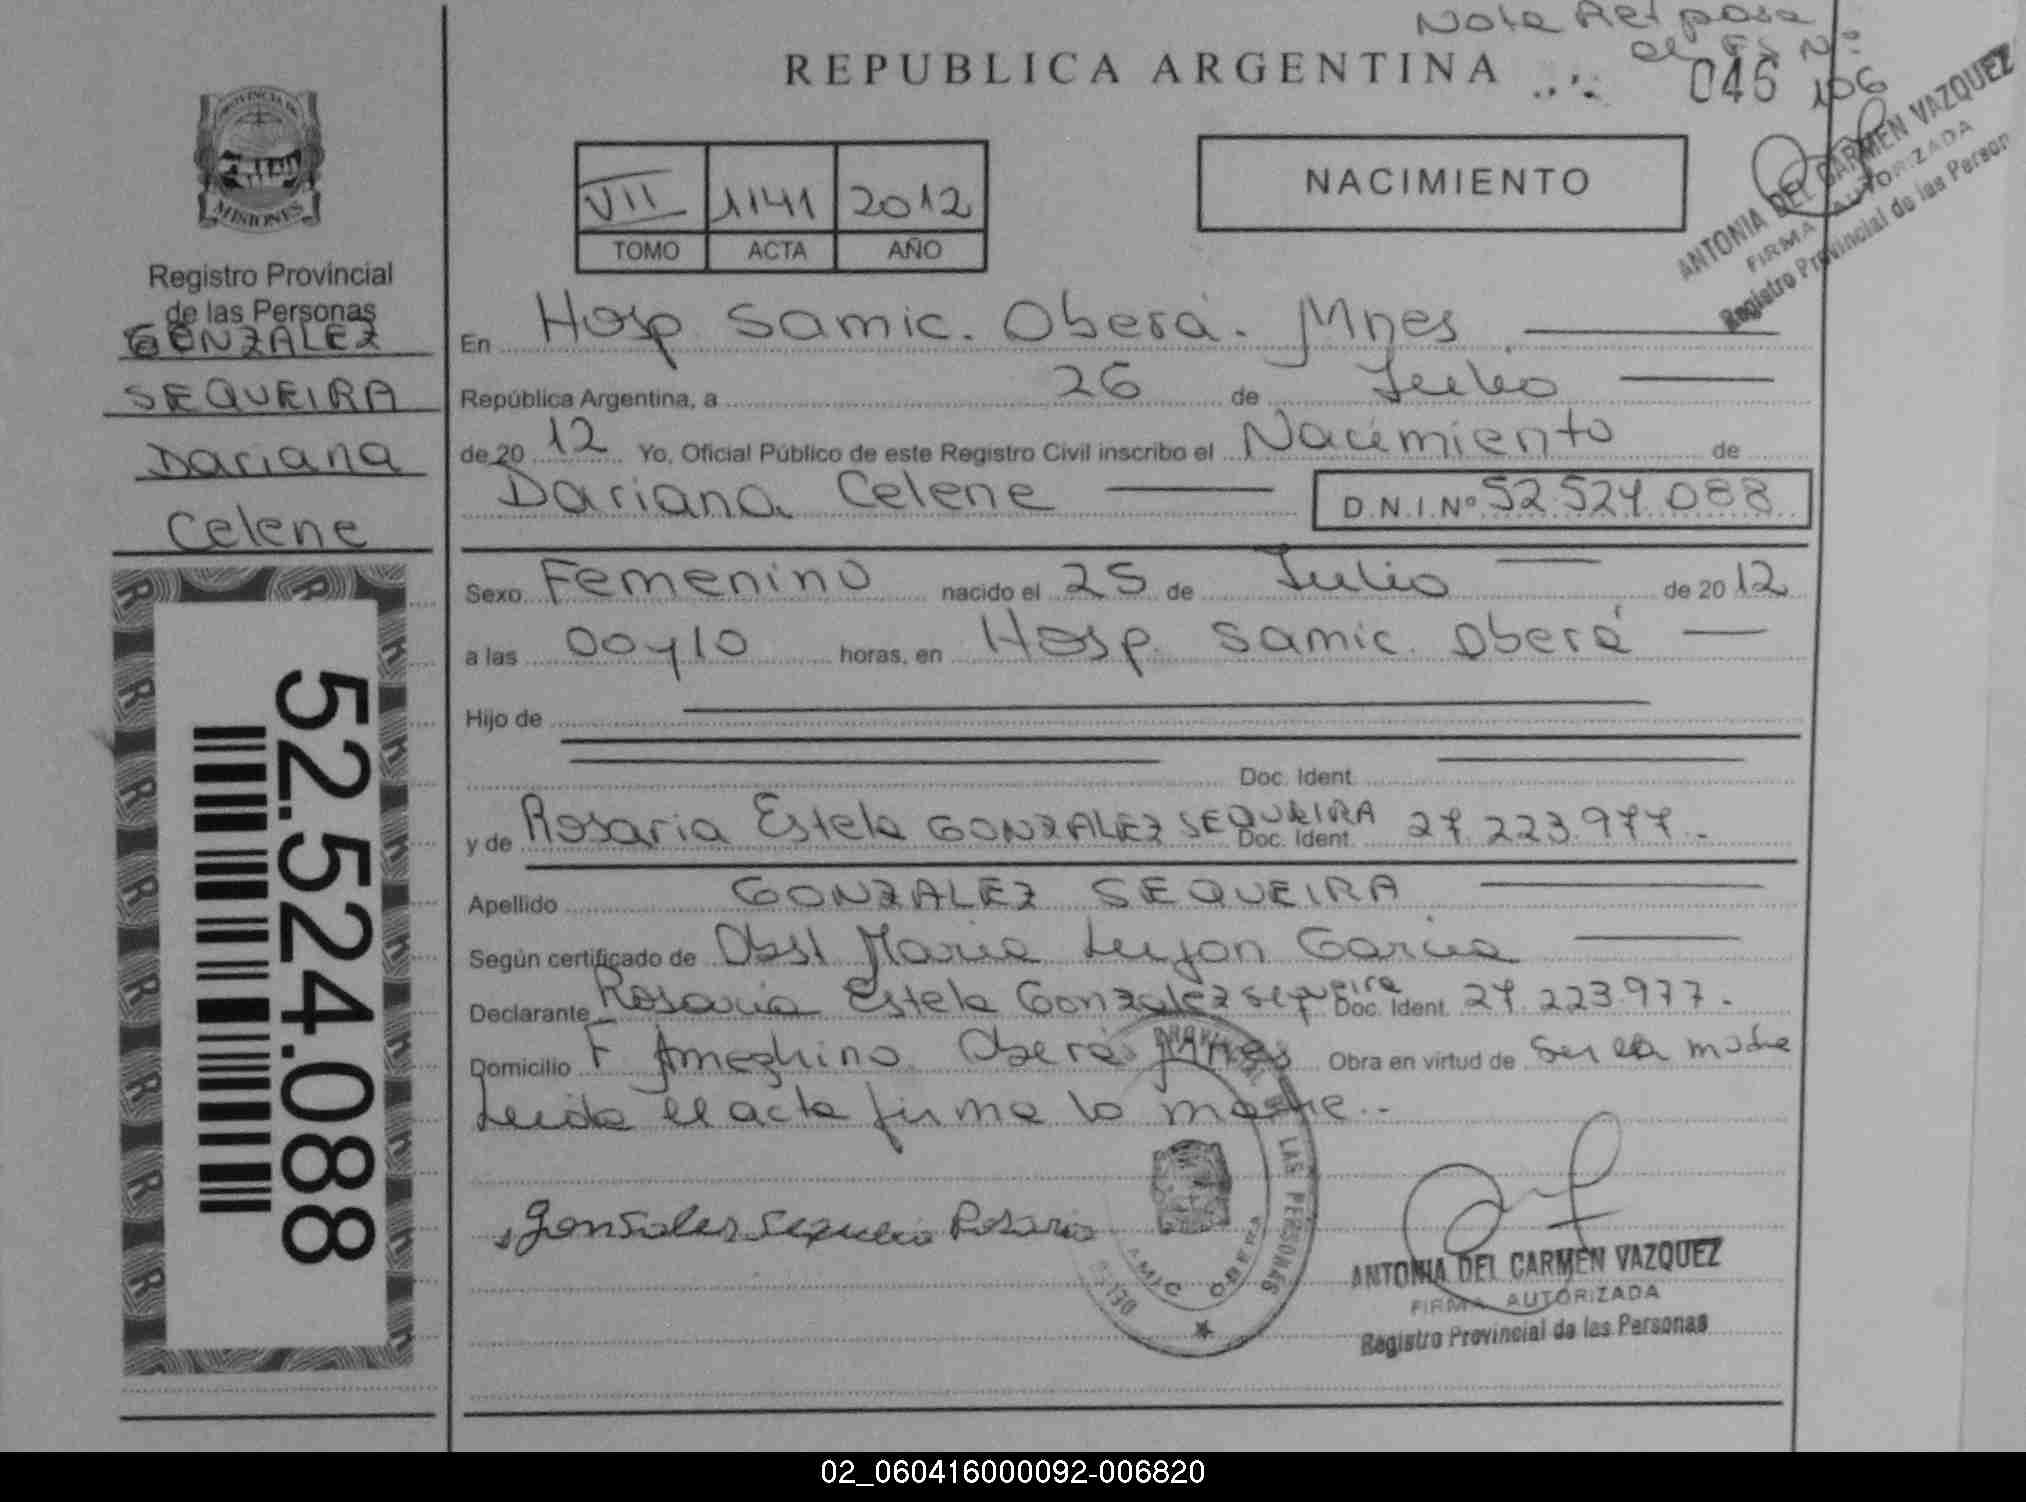 Nota Ref pasa
al Fs Nº
REPUBLICA ARGENTINA
046 106
PROVINCIA DE
MISIONES
Registro Provincial
de las Personas
GONZALEZ
SEQUEIRA
Dariana
Celene
52.524.088
VII 1141 2012
TOMO ACTA AÑO
NACIMIENTO
ANTONIA DEL CARMEN VAZQUEZ
FIRMA AUTORIZADA
Registro Provincial de las Person
En Hosp Samic. Oberá. Mnes
República Argentina, a 26 de Julio
de 20 12 Yo, Oficial Público de este Registro Civil inscribo el Nacimiento de
Dariana Celene D.N.I.Nº 52.524.088
Sexo Femenino nacido el 25 de Julio de 20 12
a las 00 y 10 horas, en Hosp. Samic. Oberá
Hijo de
Doc. Ident.
y de Rosaria Estela GONZALEZ SEQUEIRA Doc. Ident. 27.223.977.-
Apellido GONZALEZ SEQUEIRA
Según certificado de Obst Maria Lujan Garcia
Declarante Rosaria Estela Gonzalez Sequeira Doc. Ident. 27.223.977.
Domicilio F. Ameghino. Oberá Mnes Obra en virtud de ser la madre
Leida el acta firma la madre.-
Gonsales Sequeira Rosaria
PROVINCIAL DE LAS PERSONAS
SAMIC OBERA
ANTONIA DEL CARMEN VAZQUEZ
FIRMA AUTORIZADA
Registro Provincial de las Personas
02_060416000092-006820